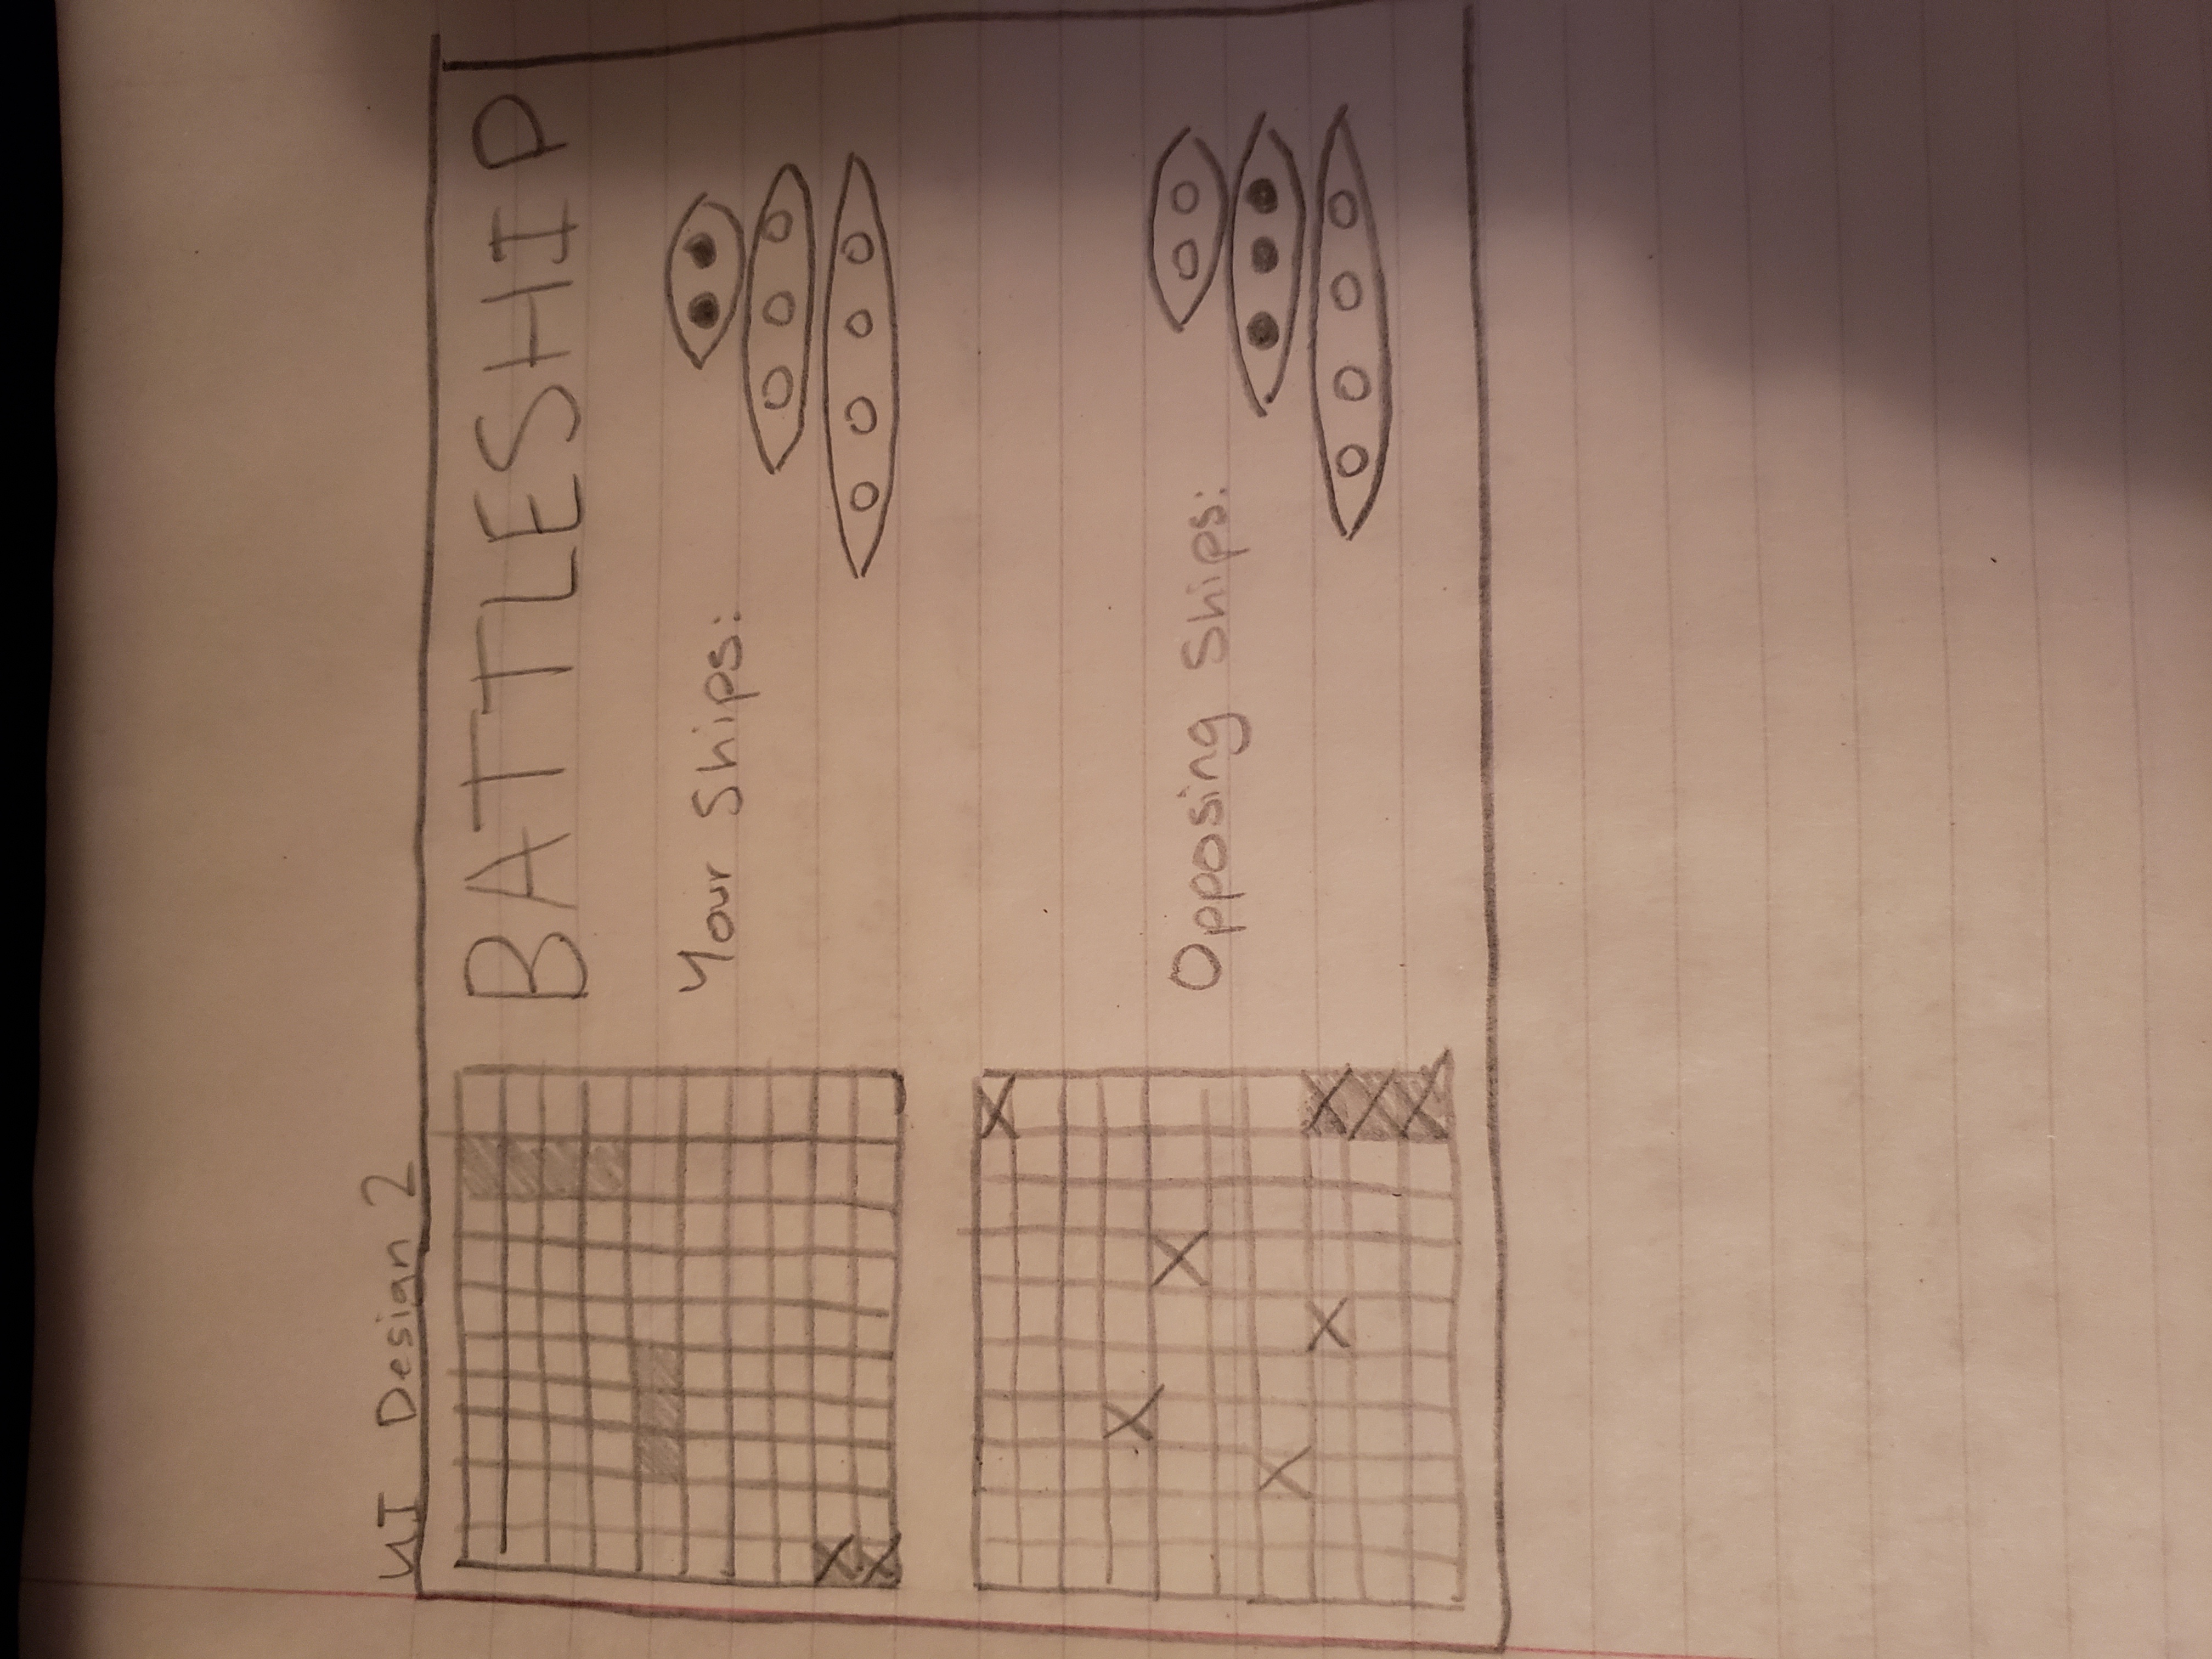 UI Design 2
BATTLESHIP
Your Ships:
Opposing Ships: